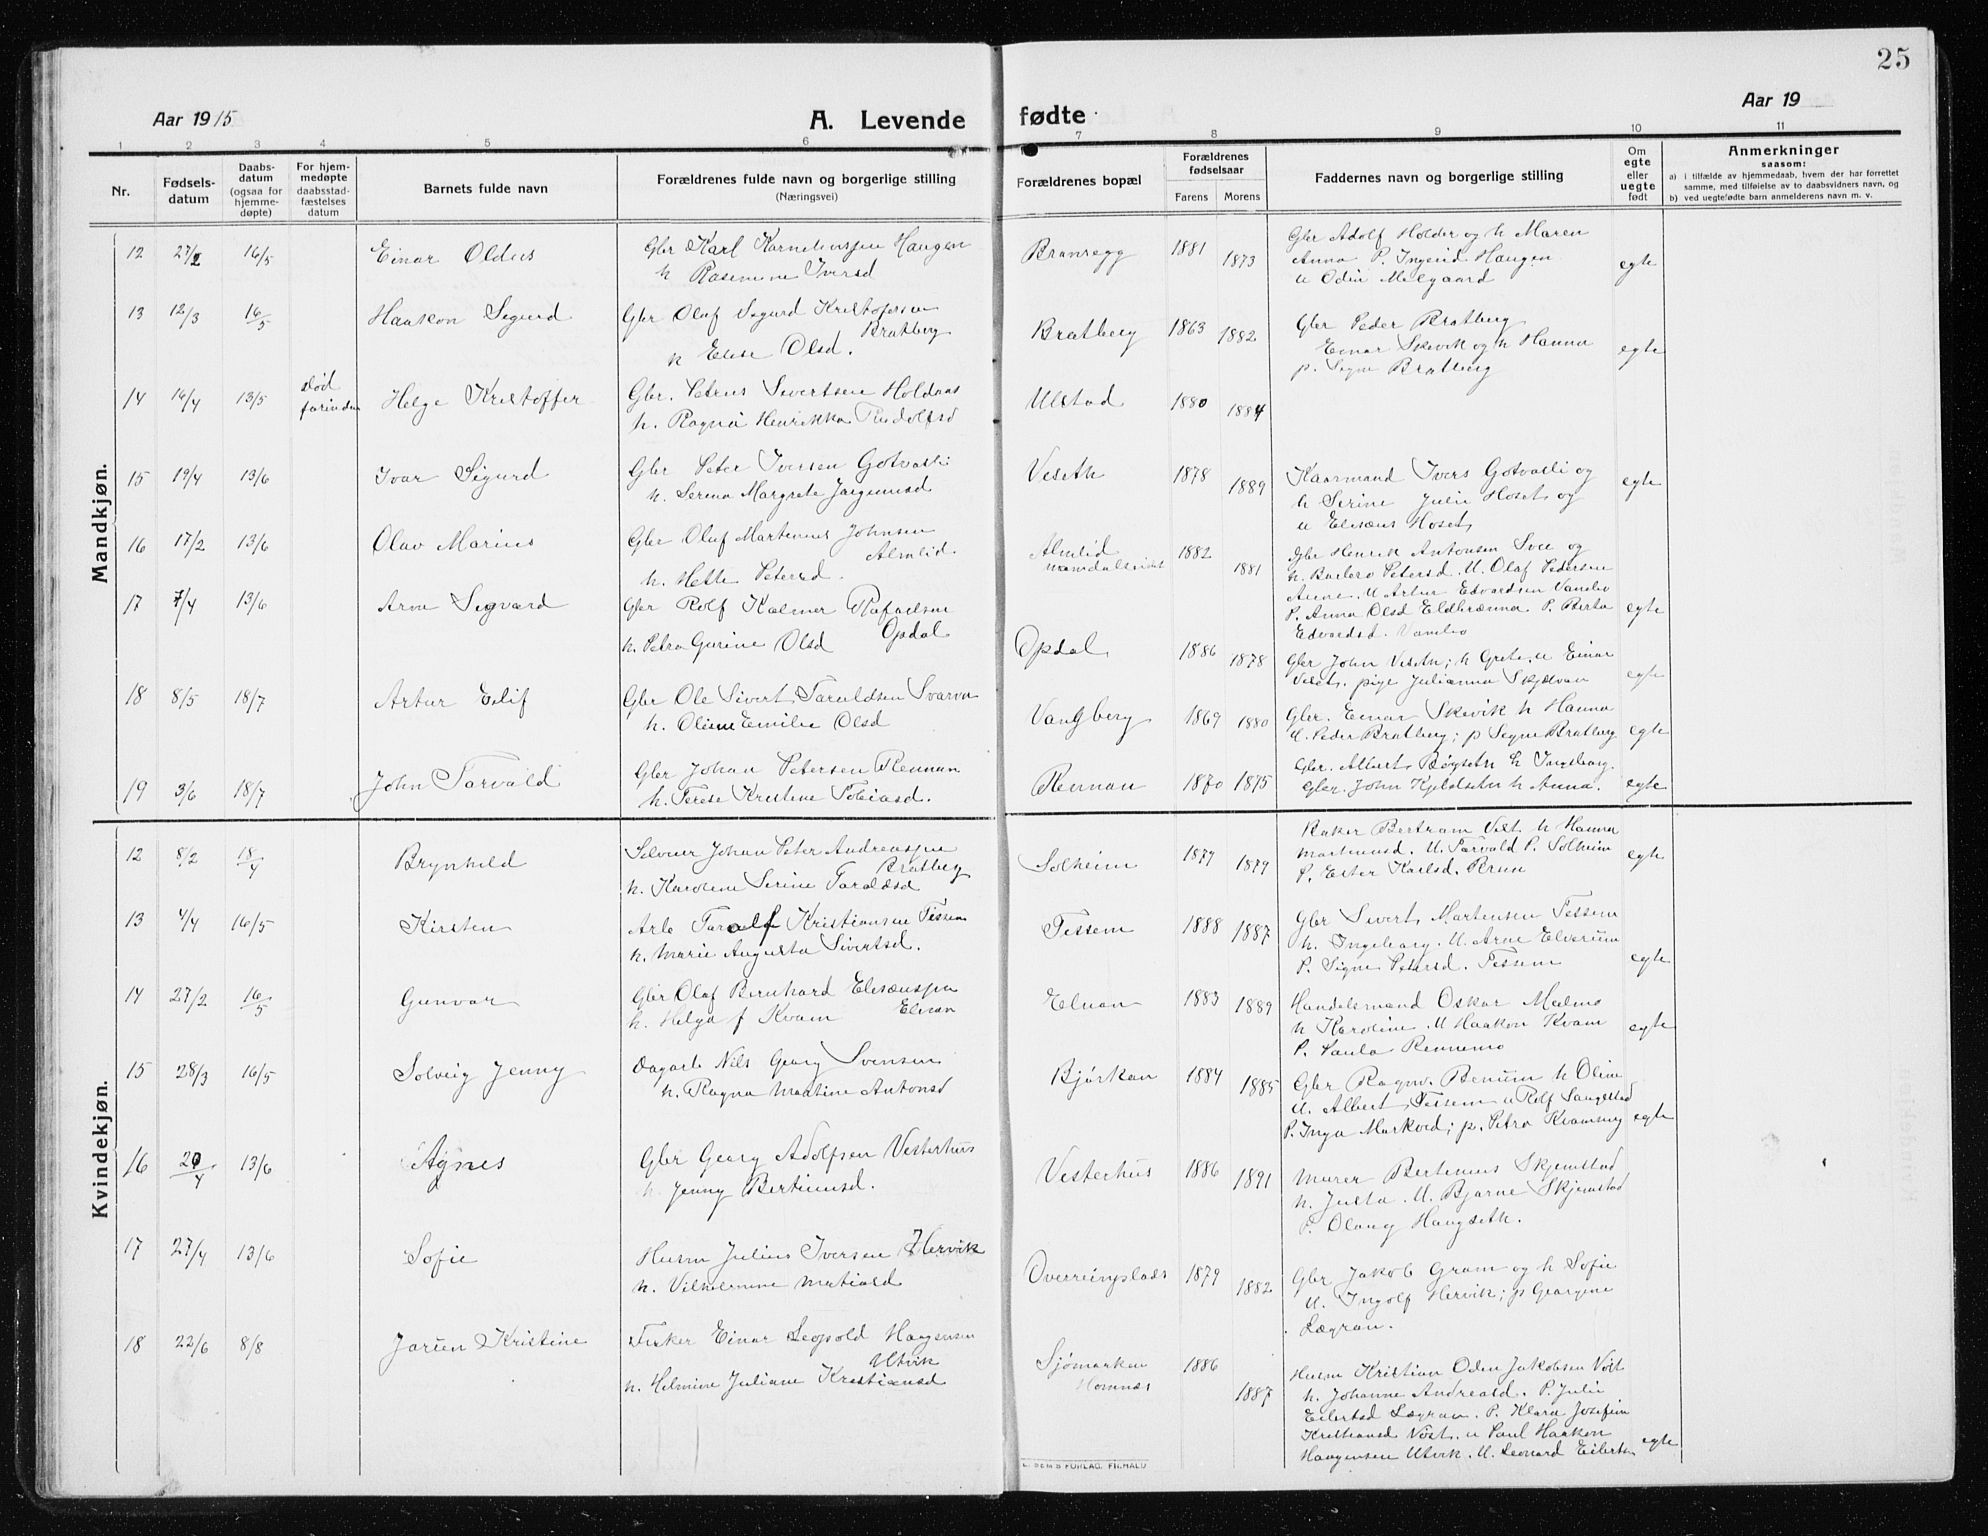 25
Aar 1915
A. Levende fødte
Aar 19
1 2 3 4 5 6 7 8 9 10 11
Nr.
Fødsels-
datum
Daabs-
datum
(ogsaa for
hjemme-
døpte)
For hjem-
medøpte
daabsstad-
fæstelses
datum
Barnets fulde navn
Forældrenes fulde navn og borgerlige stilling
(Næringsvei)
Forældrenes bopæl
Forældrenes
fødselsaar
Farens Morens
Faddernes navn og borgerlige stilling
Om
egte
eller
uegte
født
Anmerkninger
saasom:
a) i tilfælde av hjemmedaab, hvem der har forrettet
samme, med tilføielse av to daabsvidners navn, og
b) ved uegtefødte barn anmelderens navn m. v.
Mandkjøn.
12 27/2 16/5 Einar Oldus
Gbr Karl Korneliussen Haugen
h Rasmine Iversd
Branregg 1881 1873
Gbr Adolf Holder og h Maren
Anna P. Ingerid Haugen
u Odin Melgaard
egte
13 12/3 16/5 Haakon Sigurd
Gbr Olaf Sigurd Kristofersen
Bratberg
h Elise Olsd.
Bratberg 1863 1882
Gbr Peder Bratberg
Einar Skevik og h Hanna
p. Signe Bratberg
egte
14 16/4 13/5 død forinden Helge Kristoffer
Gbr. Petrus Sivertsen Holdaas
h. Ragna Henrikka Rudolfsd
Ulstad 1880 1884
15 19/4 13/6 Ivar Sigurd
Gbr Peter Iversen Gotvasli
h. Serina Margrete Jørgensd
Veseth 1878 1889
Kaarmand Ivers Gotvasli og
h Serine Julie Hoset og
u Elisæus Hoset
egte
16 17/2 13/6 Olav Marius
Gbr Oluf Martenius Johnsen
Almlid
h. Hette Petersd.
Almlid
Namdalseidet 1882 1881
Gbr Henrik Antonsen Sve og
h. Barbro Petersd. U. Olaf Pedersen
Aune. U Artur Edvardsen Vanebo
P. Anna Olsd Eldbrænna. P. Berta
Edvardsd. Vanebo
egte
17 7/4 13/6 Arne Sigvard
Gbr Rolf Kalmer Rafaelsen
Opdal
h. Petra Gurine Olsd
Opdal 1886 1878
Gbr John Veseth; h Grete, u Einar
Veset. pige Julianna Skjævan
egte
18 8/5 18/7 Artur Eilif
Gbr Ole Sivert Taraldsen Svarva
h. Oline Emilie Olsd
Vangberg 1869 1880
Gbr. Einar Skevik h Hanna
U. Peder Bratberg; p Signe Bratberg
egte
19 3/6 18/7 John Torvald
Gbr Johan Petersen Rennan
h. Terese Kristine Tobiasd.
Rennan 1870 1875
Gbr. Albert Bøgseth h Ingeborg.
Gbr. John Kjeldseth h Anna.
egte
Kvindekjøn.
12 8/2 18/4 Brynhild
Selveier Johan Peter Andreassen
Bratberg
h. Karoline Serine Taraldsd
Solheim 1877 1879
Baker Bertram Vest h Hanna
Martinusd. U. Torvald P. Solheim
P. Ester Karlsd. Bruun
egte
13 4/4 16/5 Kirsten
Arb Toralf Kristiansen Tessem
h. Marie Augusta Sivertsd.
Tessem 1888 1887
Gbr Sivert Martensen Tessem
h. Ingeborg. U. Arne Elverum
P. Signe Petersd. Tessem
egte
14 27/2 16/5 Gunvor
Gbr Olaf Bernhard Elisæussen
Elnan
h. Helga f Kvam
Elnan 1883 1889
Handelsmand Oskar Malmo
h Karoline. U Haakon Kvam
P. Paula Rennemo
egte
15 28/3 16/5 Solveig Jenny
Dagarb Nils Georg Svensen
h. Ragna Martine Antonsd
Bjørkan 1884 1885
Gbr Ragnv. Benum h Oline
U. Albert Tessem u Rolf Saugestad
P. Inga Markved; p. Petra Kvamning
egte
16 20/4 13/6 Agnes
Gbr Georg Adolfsen Vesterhus
h. Jenny Bertinusd.
Vesterhus 1886 1891
Murer Bertinus Skjemstad
h. Julia. U. Bjarne Skjemstad
P. Olaug Haugseth.
17 27/4 13/6 Sofie
Husm Julius Iversen Hervik
h. Vilhelmine Matiasd
Overreinsplads 1879 1882
Gbr Jakob Gram og h Sofie
U. Ingolf Hervik; p Georgine
Lægran.
18 22/6 8/8 Jorun Kristine
Fisker Einar Leopold Haagensen
Utvik
h. Helmine Juliane Kristiansd
Sjømarken
Homnes 1886 1887
Husm Kristian Oden Jakobsen Vøst
h. Johanne Andreasd. P. Julie
Eilertsd Lægran. P. Klara Josefine
Kristiansd Vøst. u Paul Haakon
Haagensen Utvik. U. Leonard Eilerts
egte
E. SEM'S FORLAG, FR.HALD